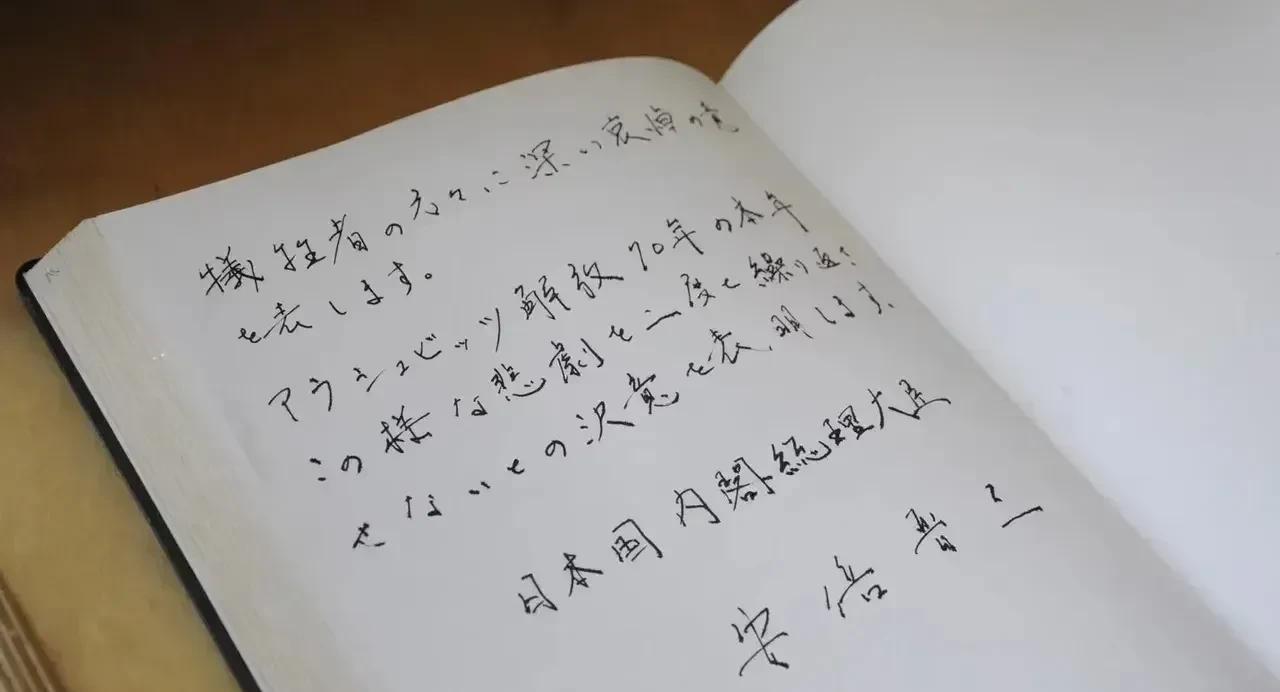 犠牲者の方々に深い哀悼の意
を表します。
アウシュビッツ解放70年の本年
この様な悲劇を二度と繰り返さ
せないとの決意を表明します。
日本国 内閣総理大臣
安倍晋三